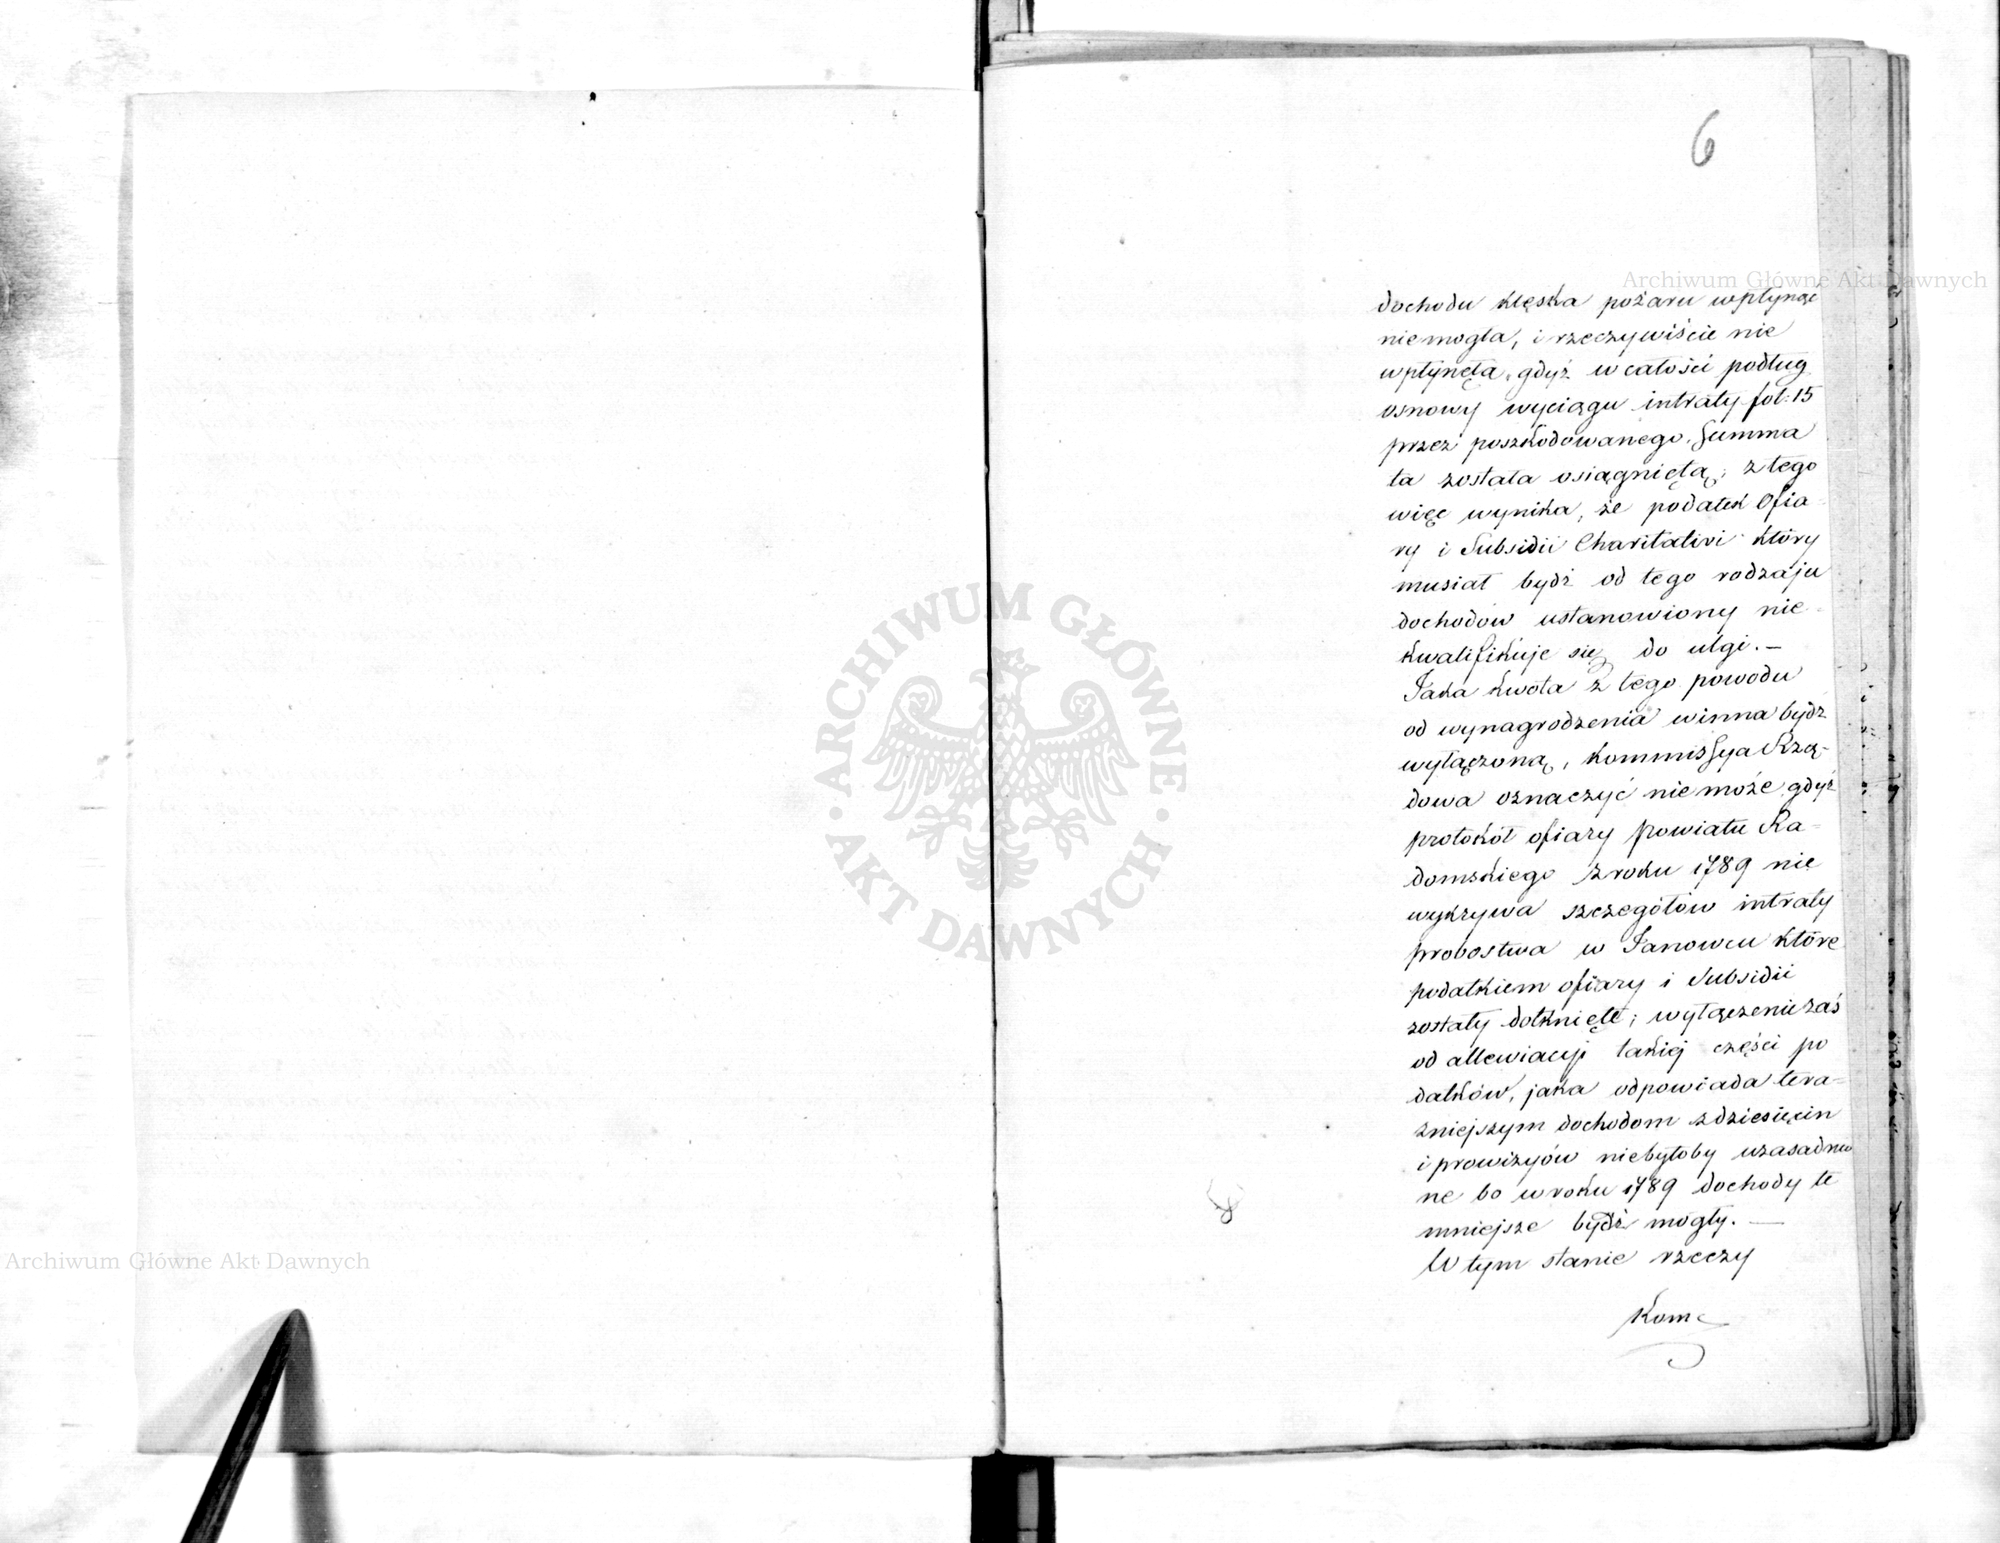 6
dochodu klęska pożaru wpłynąć
niemogła, i rzeczywiście nie
wpłynęła, gdyż w całości podług
osnowy wyciągu intraty fol: 15
przez poszkodowanego Summa
ta została osiągniętą; z tego
więc wynika, że podatek Ofia-
ry i Subsidii Charitativi który
musiał bydź od tego rodzaju
dochodów ustanowiony nie-
kwalifikuje się do ulgi. —
Jaka kwota z tego powodu
od wynagrodzenia winna bydź
wyłączoną, Kommissya Rzą-
dowa oznaczyć niemoże gdyż
protokół ofiary Powiatu Ra-
domskiego z roku 1789 nie
wykrywa szczegółów intraty
probostwa w Janowcu które
podatkiem ofiary i Subsidii
zostały dotknięte; wyłączenie zaś
od allewiacyi takiej części po
datków, jaka odpowiada tera-
zniejszym dochodom z dziesięcin
i prowizyów niebyłoby uzasadnio
ne bo w roku 1789 dochody te
mniejsze bydź mogły. —
W tym stanie rzeczy
Kom
Archiwum Główne Akt Dawnych
Archiwum Główne Akt Dawnych
ARCHIWUM GŁÓWNE
AKT DAWNYCH